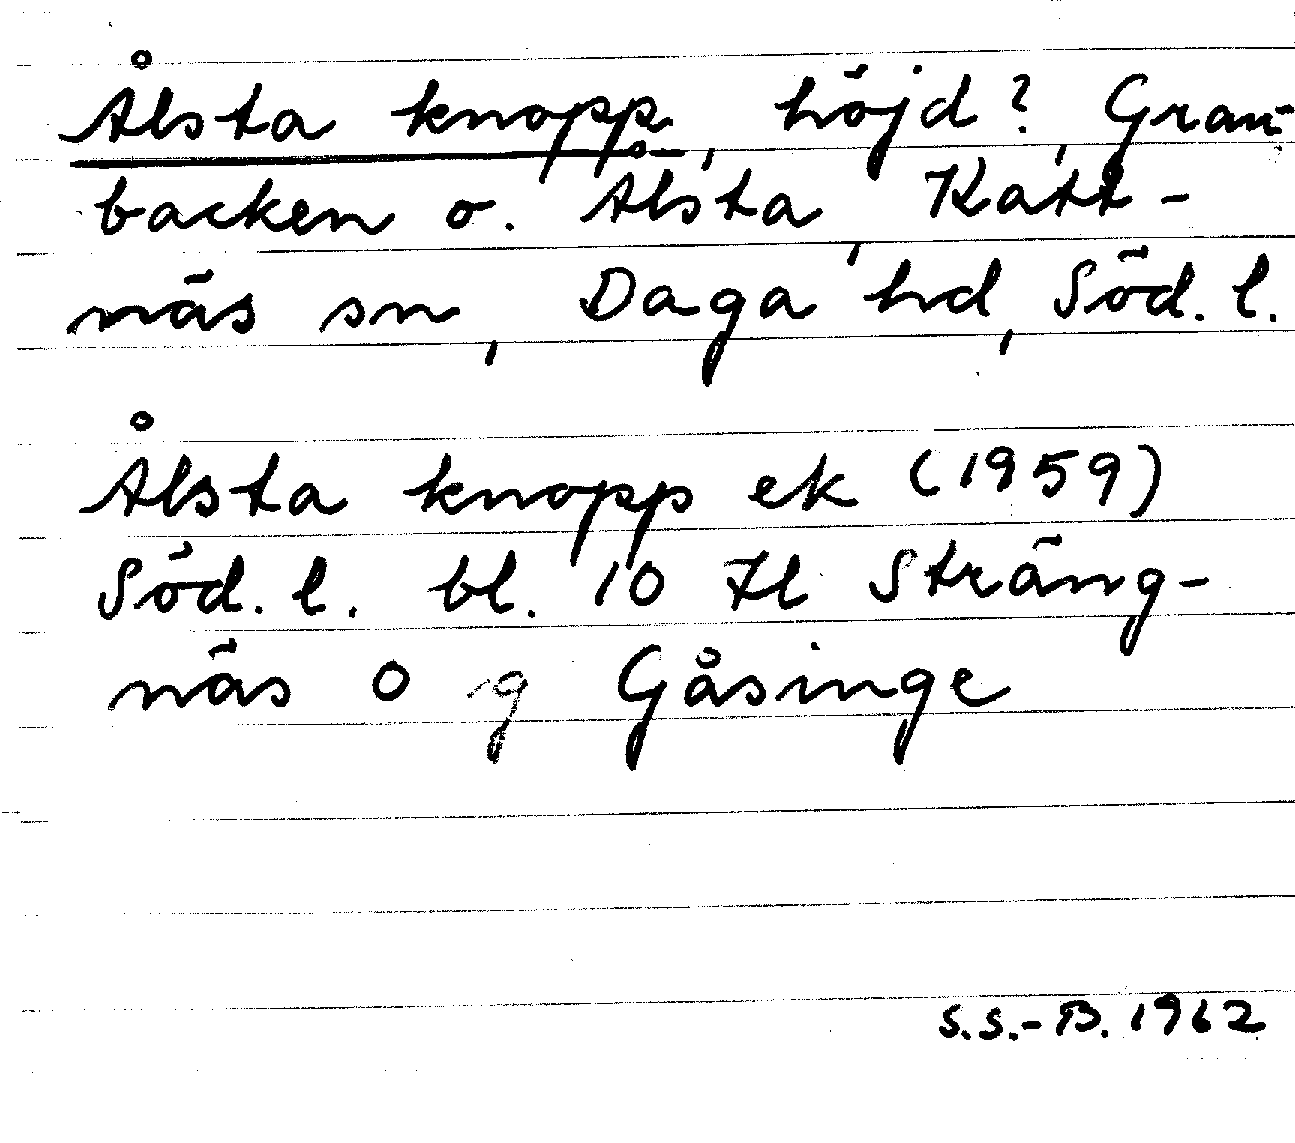 Ålsta knopp, höjd?, Gran-
backen o. Ålsta, Katt-
näs sn, Daga hd, Söd. l.
Ålsta knopp ek (1959)
Söd. l. bl. 10 Il Sträng-
näs O g Gåsinge
S.S.-B. 1962